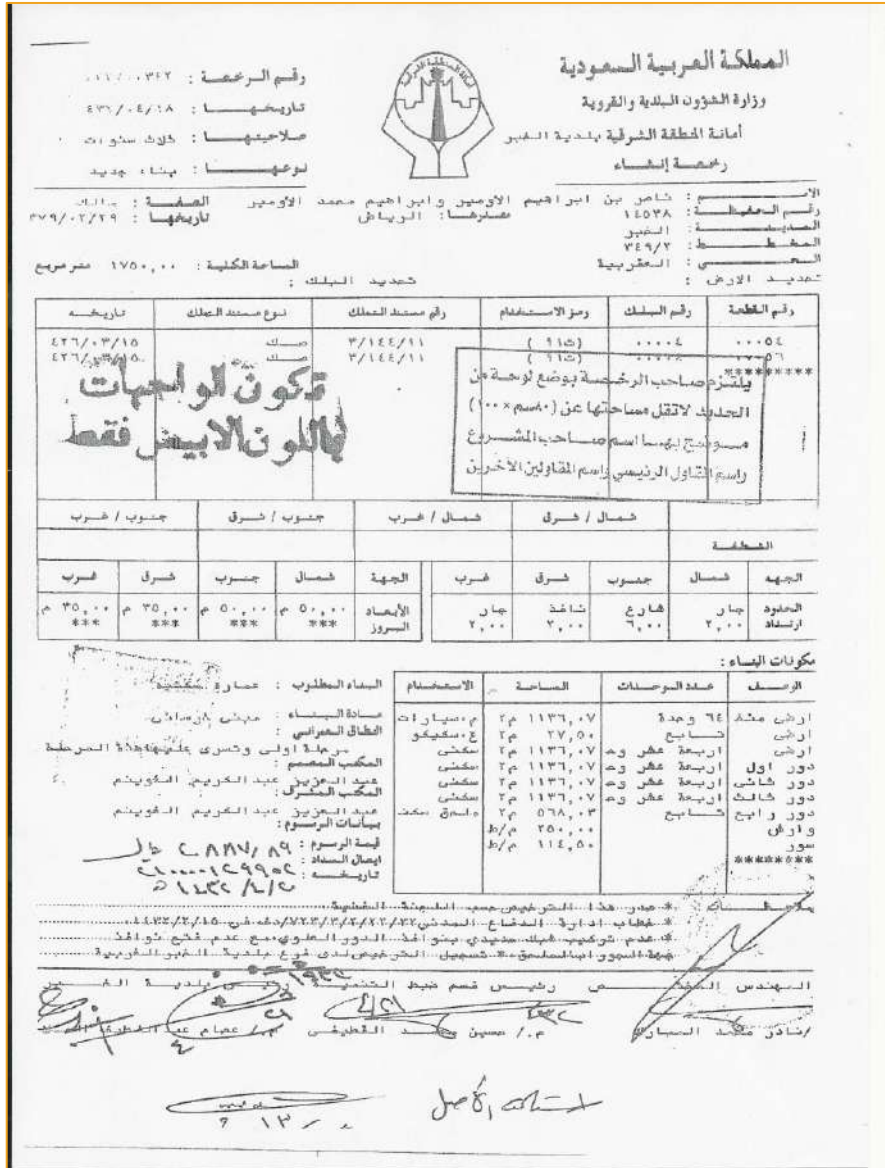 المملكة العربية السعودية
وزارة الشؤون البلدية والقروية
أمانة المنطقة الشرقية بلدية الخبر
رخصة إنشاء
رقم الرخصة :
تاريخها : ٤٣٢/٠٤/١٨
صلاحيتها : ثلاث سنوات
نوعها : بناء جديد
الاسم : ناصر بن ابراهيم الاومير وابراهيم محمد الاومير الصفة : مالك
رقم الحفيظة : ١٤٥٣٨ مصدرها : الرياض تاريخها : ٣٧٩/٠٢/٢٩
المدينة : الخبر
المخطط : ٣٤٩/٢
الحي : العقربية المساحة الكلية : ١٧٥٠,٠٠ متر مربع
تحديد الارض : تحديد البلك :
رقم القطعة رقم البلك رمز الاستخدام رقم مستند التملك نوع مستند التملك تاريخه
٠٠٠٥٤ ٠٠٠٠٤ ٣/١٤٤/١١ صك ٤٢٦/٠٣/١٥
٣/١٤٤/١١ صك ٤٢٦/٠٣/١٥
*********
تكون الواجهات
باللون الابيض فقط
يلتزم صاحب الرخصة بوضع لوحة من
الحديد لاتقل مساحتها عن (٨٠سم × ١٠٠)
موضح بها اسم صاحب المشروع
واسم المقاول الرئيسي واسم المقاولين الآخرين
شمال / شرق شمال / غرب جنوب / شرق جنوب / غرب
الشطفة
الجهه شمال جنوب شرق غرب الجهة شمال جنوب شرق غرب
الحدود جار شارع نافذ جار الأبعاد ٥٠,٠٠ م ٥٠,٠٠ م ٣٥,٠٠ م ٣٥,٠٠ م
ارتداد ٢,٠٠ ٦,٠٠ ٢,٠٠ ٢,٠٠ البروز *** *** *** ***
مكونات البناء :
الوصف عدد الوحدات المساحة الاستخدام
ارضى ٦٤ وحدة ١١٣٦,٠٧ م٢ م.سيارات
ارضى تابع ٢٧,٥٠ م٢
ارضى اربعة عشر وح ١١٣٦,٠٧ م٢ سكنى
دور اول اربعة عشر وح ١١٣٦,٠٧ م٢ سكنى
دور ثانى اربعة عشر وح ١١٣٦,٠٧ م٢ سكنى
دور ثالث اربعة عشر وح ١١٣٦,٠٧ م٢ سكنى
دور رابع تابع ٥٦٨,٠٣ م٢ ملحق سكن
٢٥٠,٠٠ م/ط
سور ١١٤,٥٠ م/ط
********
البناء المطلوب : عمارة سكنية
مادة البناء : مبنى خرسانى
النطاق العمراني :
مرحلة اولى وتسرى عليها هذة المرحلة
المكتب المصمم :
عبد العزيز عبد الكريم
المكتب المشرف :
عبد العزيز عبد الكريم
بيانات الرسوم :
قيمة الرسوم : ٢٨٨٧/٨٩ ريال
ايصال السداد :
تاريخه : ١٤٣٢/٤/٢٠ ه
ملاحظات * صدر هذا الترخيص حسب اللجنة الفنية
* خطاب ادارة الدفاع المدنى
* عدم تركيب شبك حديدي بنوافذ الدور العلوى مع عدم فتح نوافذ
جهة المجاور بالملحق * تسجيل الترخيص لدى فرع بلدية الخبر الغربية
المهندس المختص رئيس قسم ضبط التنمية رئيس بلدية الخبر
م./ حسين القطيفى
استلمت الأصل